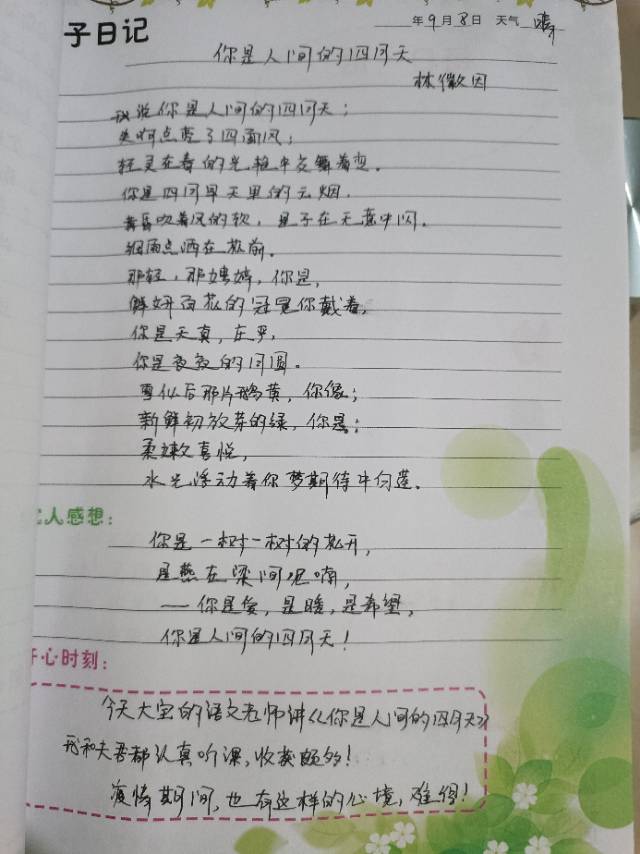 子日记
年9月8日 天气 晴
你是人间的四月天
林徽因
我说你是人间的四月天;
笑响点亮了四面风;
轻灵在春的光艳中交舞着变。
你是四月早天里的云烟,
黄昏吹着风的软,星子在无意中闪,
细雨点洒在花前。
那轻,那娉婷,你是,
鲜妍百花的冠冕你戴着,
你是天真,庄严,
你是夜夜的月圆。
雪化后那片鹅黄,你像;
新鲜初放芽的绿,你是;
柔嫩喜悦,
水光浮动着你梦期待中白莲。
人感想:
你是一树一树的花开,
是燕在梁间呢喃,
——你是爱,是暖,是希望,
你是人间的四月天!
开心时刻:
今天大宝的语文老师讲《你是人间的四月天》
我和夫君都认真听课,收获颇多!
疫情期间,也有这样的心境,难得!